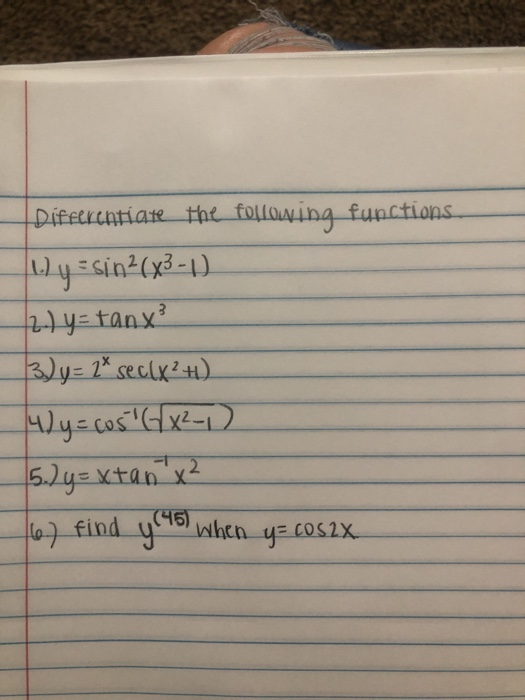 Differentiate the following functions.
1.) y = sin²(x³-1)
2.) y = tanx³
3.) y = 2ˣ sec(x²+1)
4.) y = cos⁻¹(√x²-1)
5.) y = xtan⁻¹x²
6.) find y⁽⁴⁵⁾ when y = cos2x